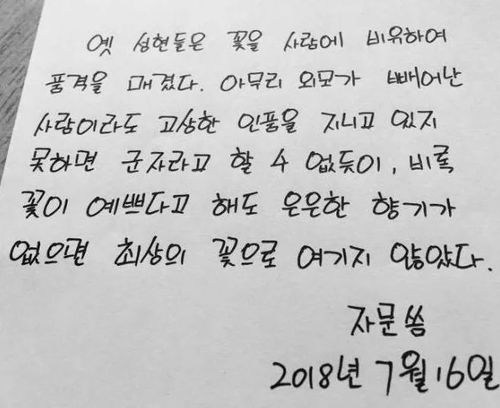 옛 성현들은 꽃을 사람에 비유하여
품격을 매겼다. 아무리 외모가 빼어난
사람이라도 고상한 인품을 지니고 있지
못하면 군자라고 할 수 없듯이, 비록
꽃이 예쁘다고 해도 은은한 향기가
없으면 최상의 꽃으로 여기지 않았다.
자문씀
2018년 7월 16일